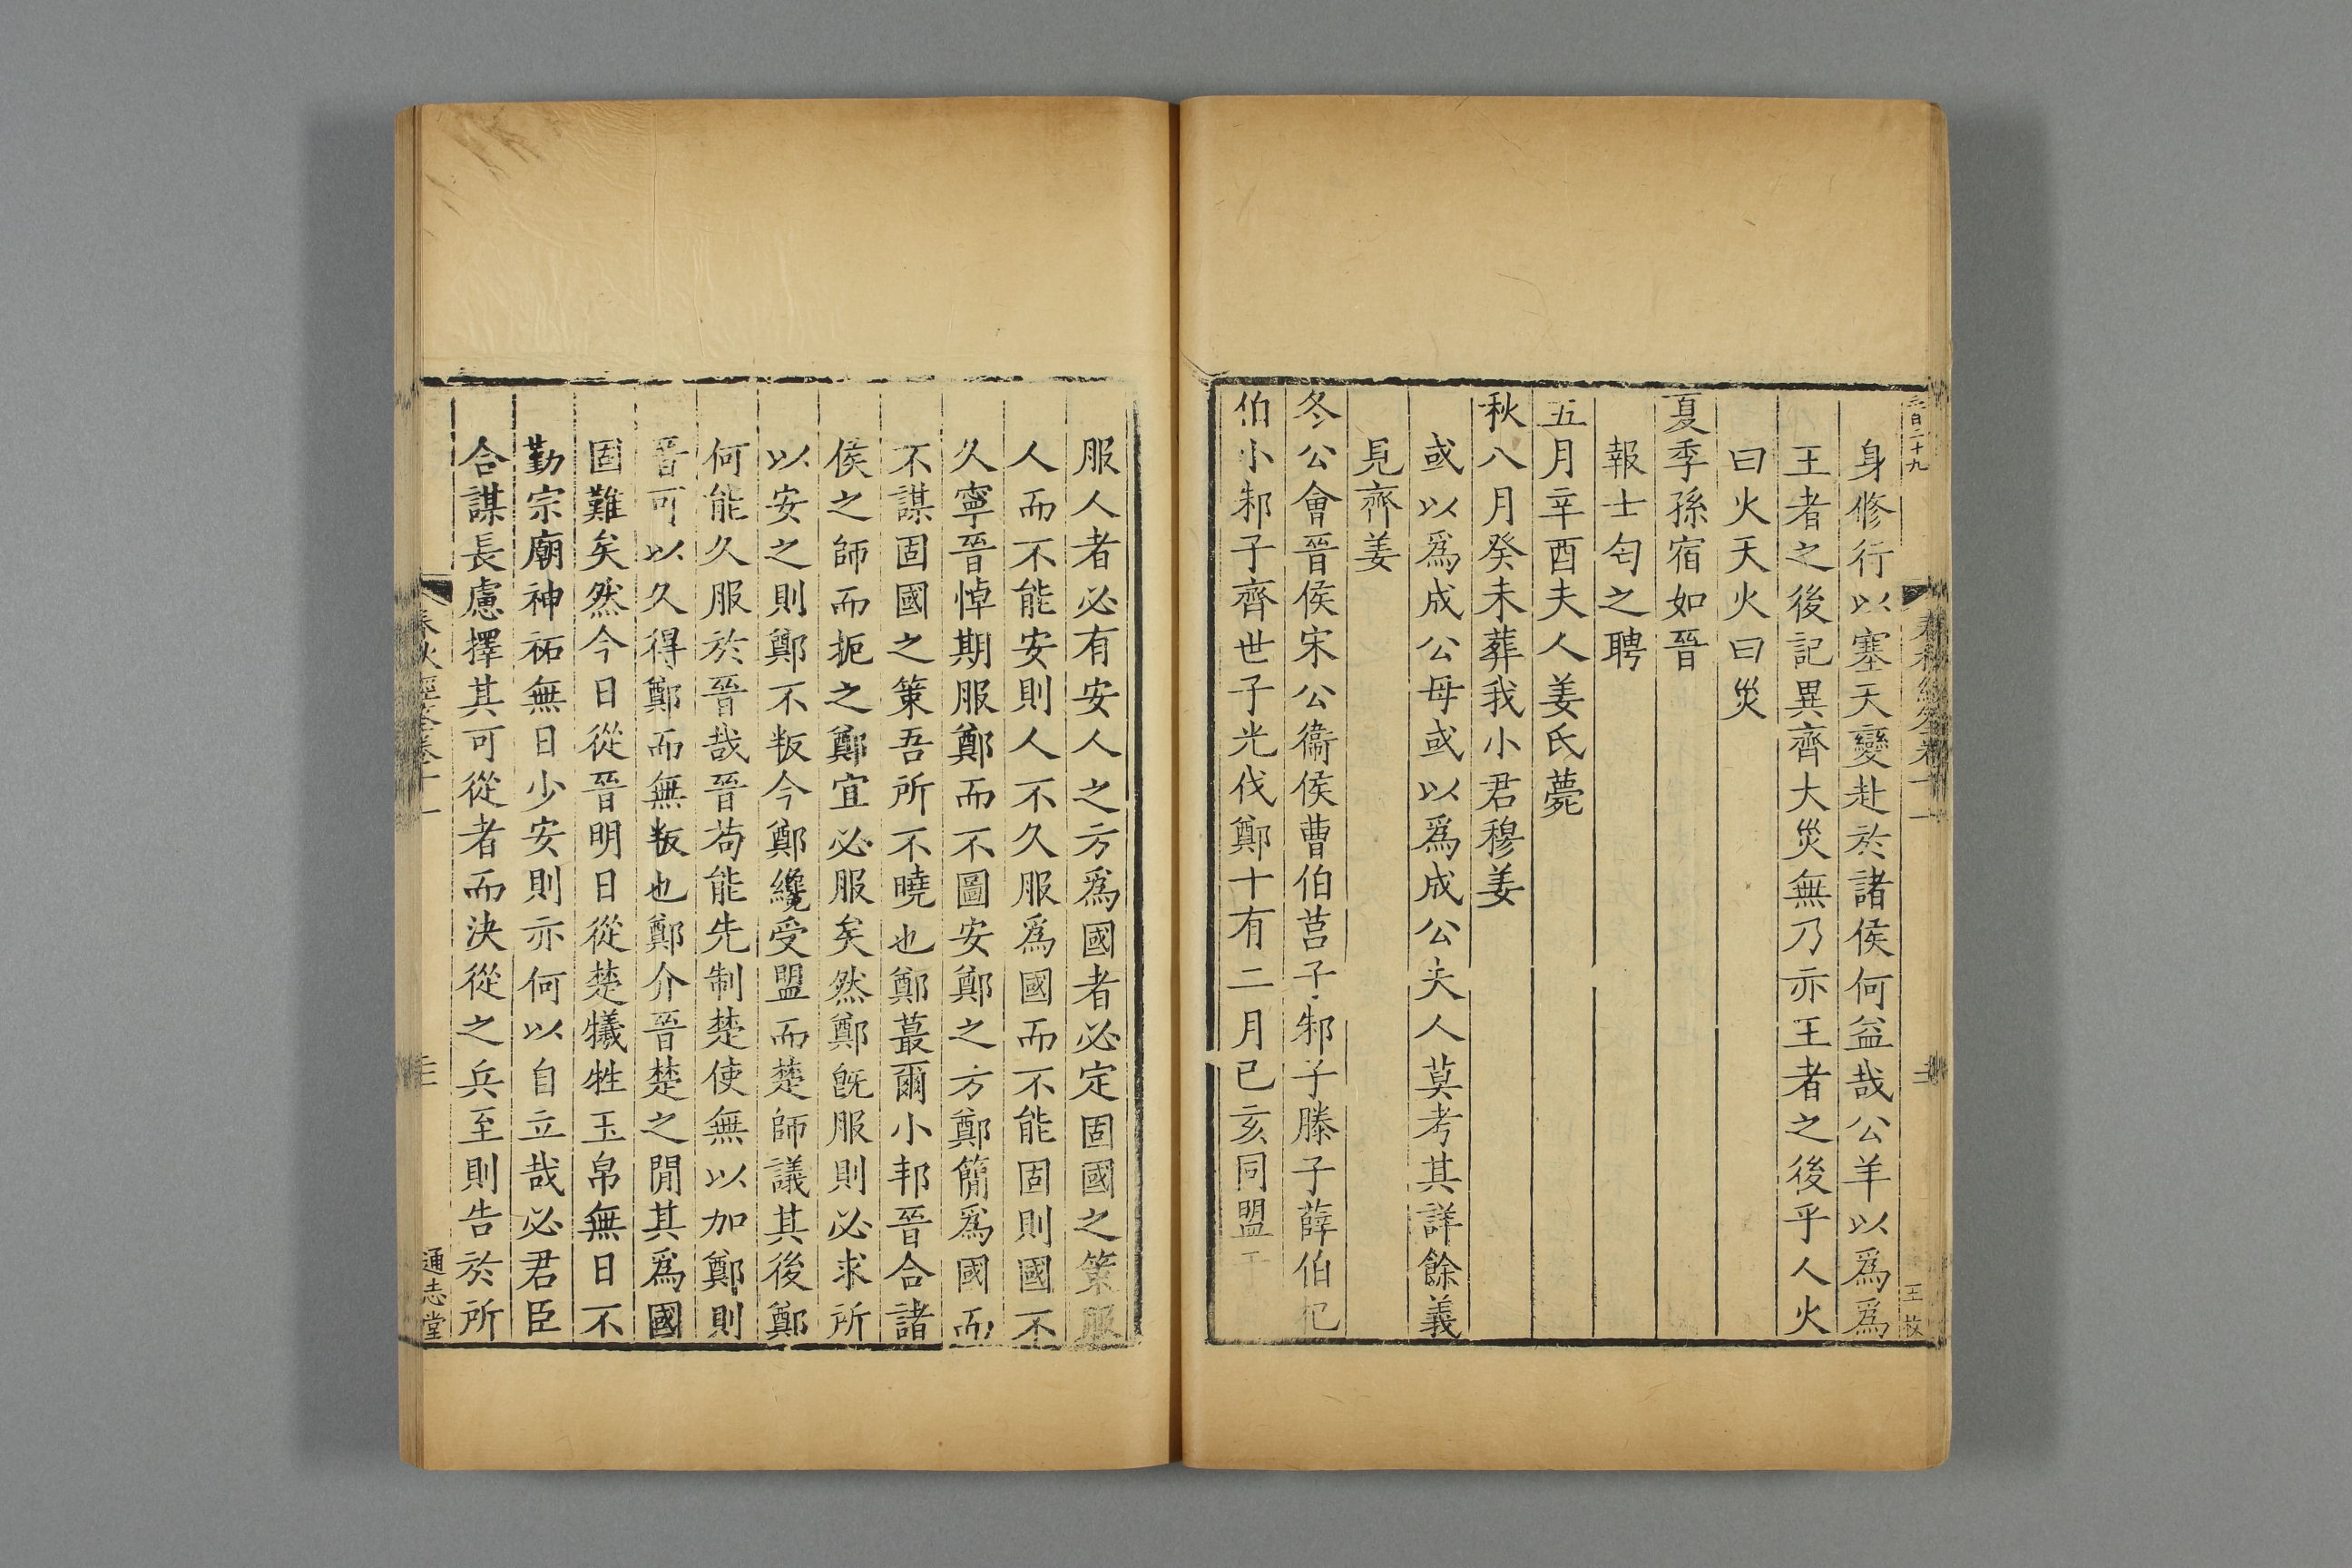 身修行以塞天變赴於諸侯何益哉公羊以爲爲
王者之後記異齊大災無乃亦王者之後乎人火
曰火天火曰災
夏季孫宿如晉
報士匄之聘
五月辛酉夫人姜氏薨
秋八月癸未葬我小君穆姜
或以爲成公母或以爲成公夫人莫考其詳餘義
見齊姜
冬公會晉侯宋公衞侯曹伯莒子邾子滕子薛伯杞
伯小邾子齊世子光伐鄭十有二月己亥同盟于
服人者必有安人之方爲國者必定固國之策服
人而不能安則人不久服爲國而不能固則國不
久寧晉悼期服鄭而不圖安鄭之方鄭簡爲國而
不謀固國之策吾所不曉也鄭蕞爾小邦晉合諸
侯之師而扼之鄭宜必服矣然鄭旣服則必求所
以安之則鄭不叛今鄭纔受盟而楚師議其後鄭
何能久服於晉哉晉苟能先制楚使無以加鄭則
晉可以久得鄭而無叛也鄭介晉楚之閒其爲國
固難矣然今日從晉明日從楚犧牲玉帛無日不
勤宗廟神祏無日少安則亦何以自立哉必君臣
合謀長慮擇其可從者而決從之兵至則告於所
通志堂